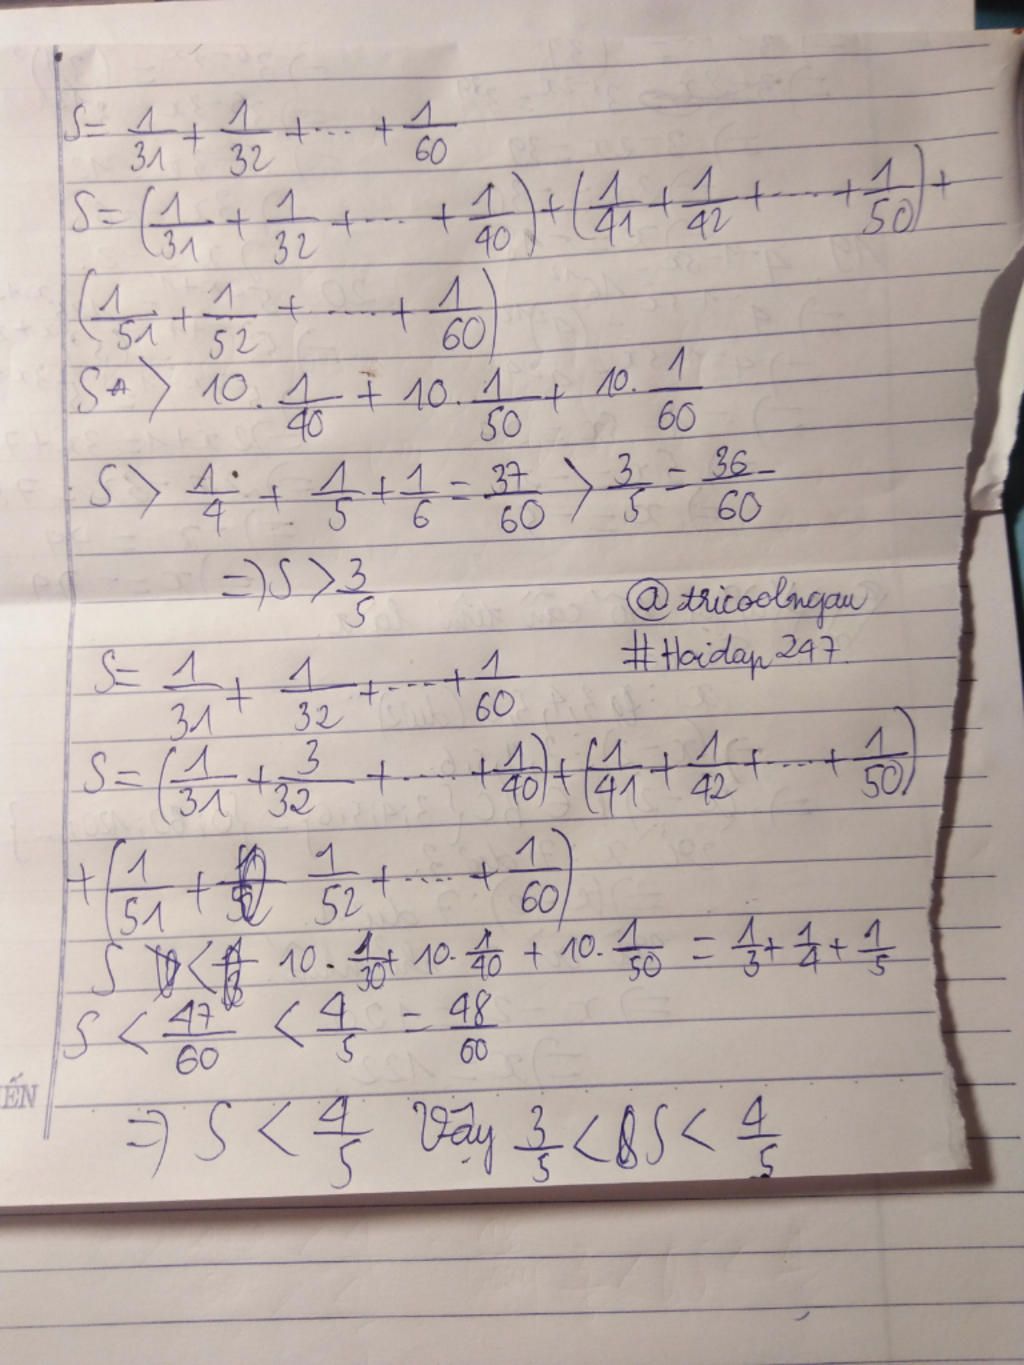 S = 1/31 + 1/32 + ... + 1/60
S = (1/31 + 1/32 + ... + 1/40) + (1/41 + 1/42 + ... + 1/50) +
(1/51 + 1/52 + ... + 1/60)
S > 10 . 1/40 + 10 . 1/50 + 10 . 1/60
S > 1/4 + 1/5 + 1/6 = 37/60 > 3/5 = 36/60
=> S > 3/5
@tricoolngau
#Hoidap247
S = 1/31 + 1/32 + ... + 1/60
S = (1/31 + 3/32 + ... + 1/40) + (1/41 + 1/42 + ... + 1/50)
+ (1/51 + 1/52 + ... + 1/60)
S < 10 . 1/30 + 10 . 1/40 + 10 . 1/50 = 1/3 + 1/4 + 1/5
S < 47/60 < 4/5 = 48/60
ẾN
=> S < 4/5 Vậy 3/5 < S < 4/5